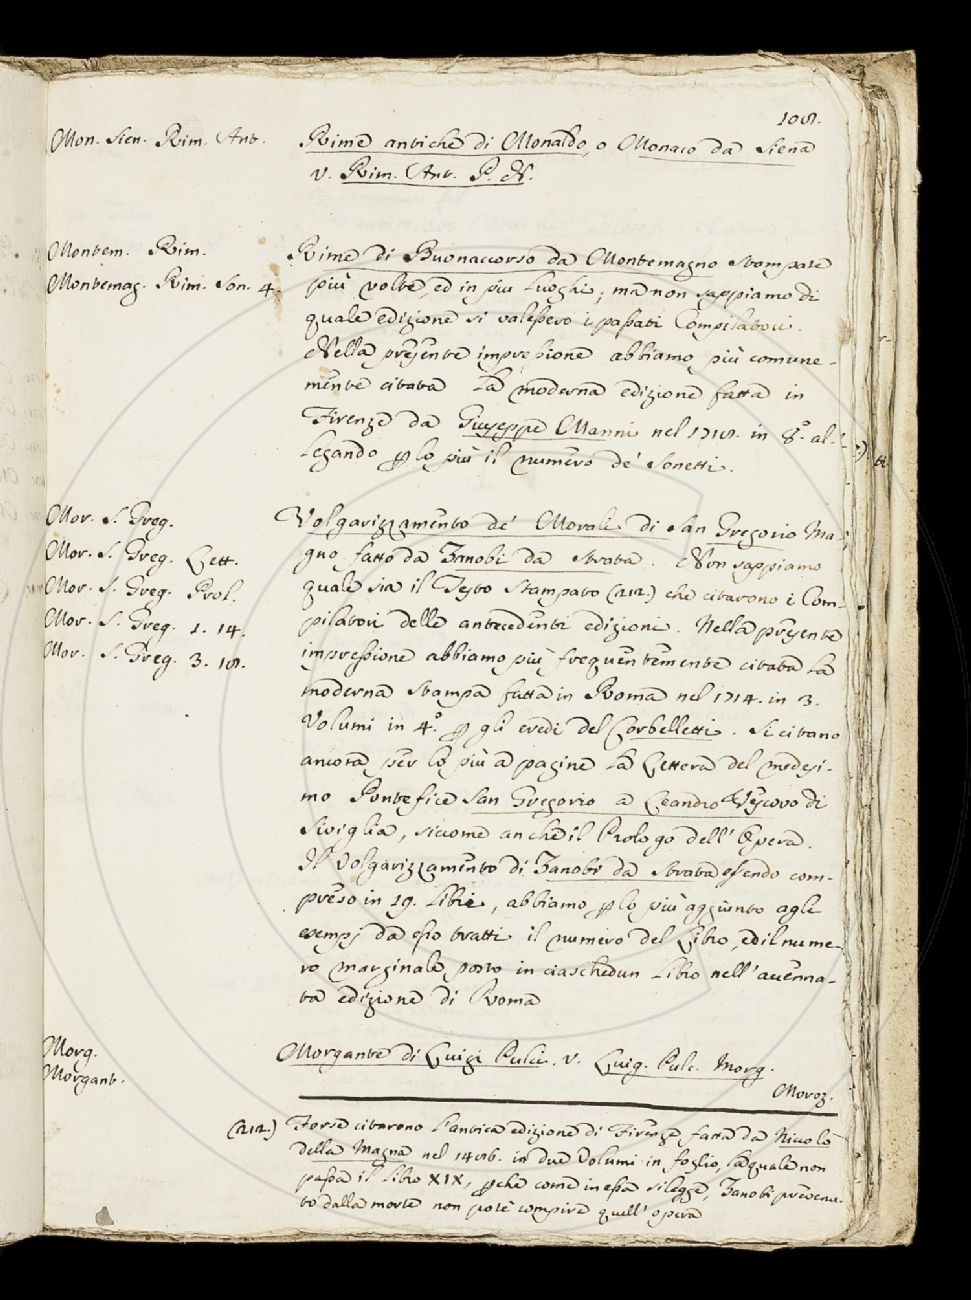 108.
Mon. Sien. Rim. Ant. Rime antiche di Monaldo, o Monaco da Siena
v. Rim. Ant. P. N.
Montem. Rim. Rime di Buonaccorso da Montemagno stampate
Montemag. Rim. Son. 4. più volte, ed in più Luoghi; ma non sappiamo di
quale edizione si valessero i passati Compilatori.
Nella presente impressione abbiamo più comune-
mente citata la moderna edizione fatta in
Firenze da Giuseppe Manni nel 1718. in 8.° al-
legando p lo più il numero de' Sonetti.
Mor. S. Greg. Volgarizzamento de' Morali di San Gregorio Ma-
Mor. S. Greg. Lett. gno fatto da Zanobi da Strata. Non sappiamo
Mor. S. Greg. Prol. quale sia il Testo Stampato (212.) che citarono i Com-
Mor. S. Greg. 1. 14. pilatori delle antecedenti edizioni. Nella presente
Mor. S. Greg. 3. 18. impressione abbiamo più frequentemente citata la
moderna stampa fatta in Roma nel 1714. in 3.
Volumi in 4.° p gli eredi del Corbelletti. Si citano
ancora per lo più a pagine la Lettera del medesi-
mo Pontefice San Gregorio a Leandro Vescovo di
Siviglia, siccome anche il Prologo dell' Opera.
Il Volgarizzamento di Zanobi da Strata essendo com-
preso in 19. Libri, abbiamo p lo più aggiunto agli
esempj da esso tratti il numero del Libro, ed il nume-
ro marginale posto in ciaschedun Libro nell' accenna-
ta edizione di Roma
Morg. Morgante di Luigi Pulci. v. Luig. Pulc. Morg.
Morgant.
Moroz.
(212.) Forse citarono l'antica edizione di Firenze fatta da Nicolò
della Magna nel 1486. in due Volumi in foglio, la quale non
passa il libro XIX, pche come in essa si legge, Zanobi prevenu-
to dalla morte non potè compire quell' opera